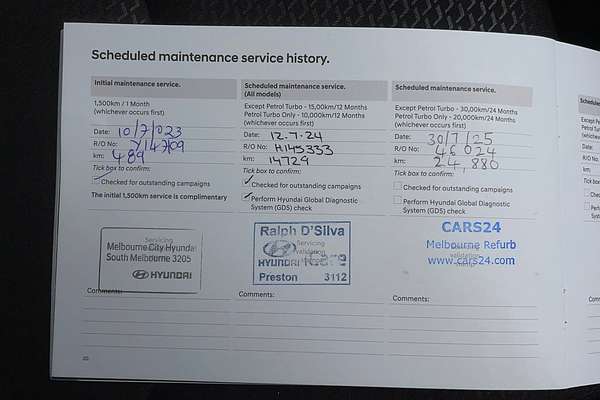 Scheduled maintenance service history.
Initial maintenance service.
1,500km / 1 Month
(whichever occurs first)
Date: 10/7/2023
R/O No:
km: 489
Tick box to confirm:
Checked for outstanding campaigns
The initial 1,500km service is complimentary
Melbourne City Hyundai
South Melbourne 3205
HYUNDAI
Comments:
Scheduled maintenance service.
(All models)
Except Petrol Turbo - 15,00km/12 Months
Petrol Turbo Only - 10,000km/12 Months
(whichever occurs first)
Date: 12.7.24
R/O No: H145333
km: 14729
Tick box to confirm:
Checked for outstanding campaigns
Perform Hyundai Global Diagnostic
System (GDS) check
Ralph D'Silva
Servicing
validation
HYUNDAI
Preston 3112
Comments:
Scheduled maintenance service.
Except Petrol Turbo - 30,00km/24 Months
Petrol Turbo Only - 20,000km/24 Months
(whichever occurs first)
Date: 30/7/25
R/O No: 46024
km: 24,880
Tick box to confirm:
Checked for outstanding campaigns
Perform Hyundai Global Diagnostic
System (GDS) check
CARS24
Melbourne Refurb
validation
www.cars24.com
Comments:
20
Scheduled
Except P
Petrol Tu
(whichev
Date:
R/O No:
km:
Tick box
Check
Perfo
Syste
Comme